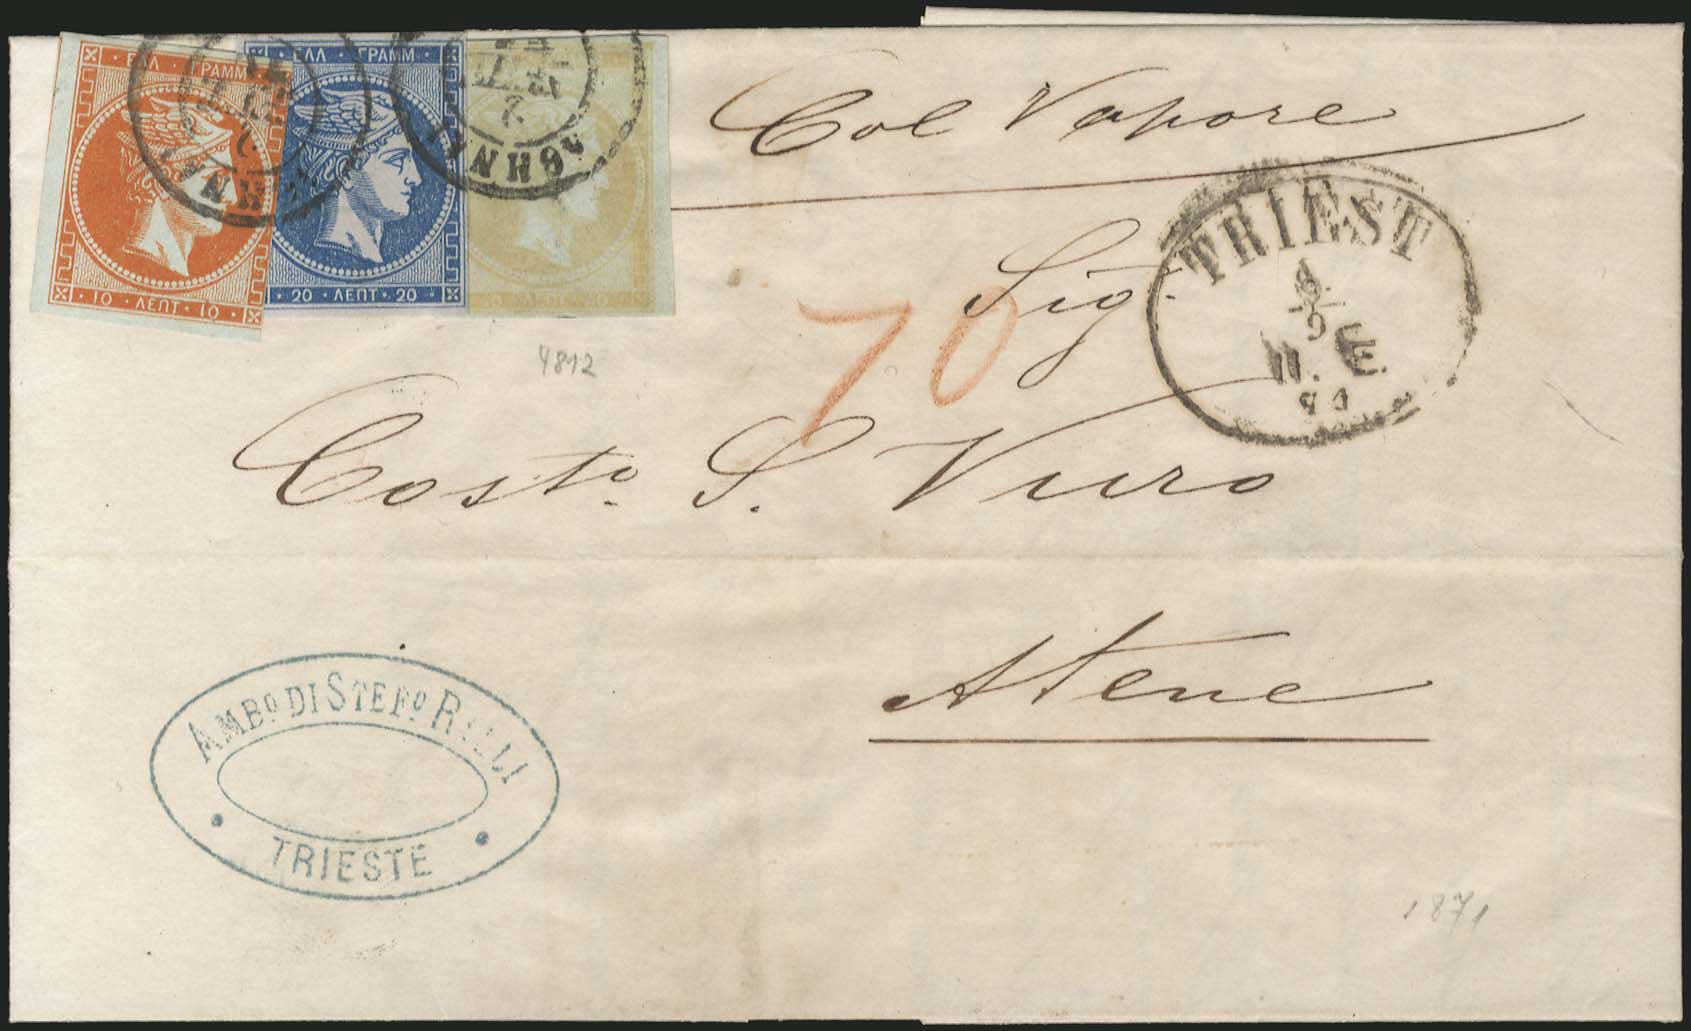 ΕΛΛ · ΓΡΑΜΜ
10 · ΛΕΠΤ · 10
ΕΛΛ · ΓΡΑΜΜ
20 · ΛΕΠΤ · 20
Col Vapore
TRIEST
9
II. E.
Sig.
70
4812
Costo. S. Vuro
Atene
AMBO. DI STEFO. RALLI
TRIESTE
1871